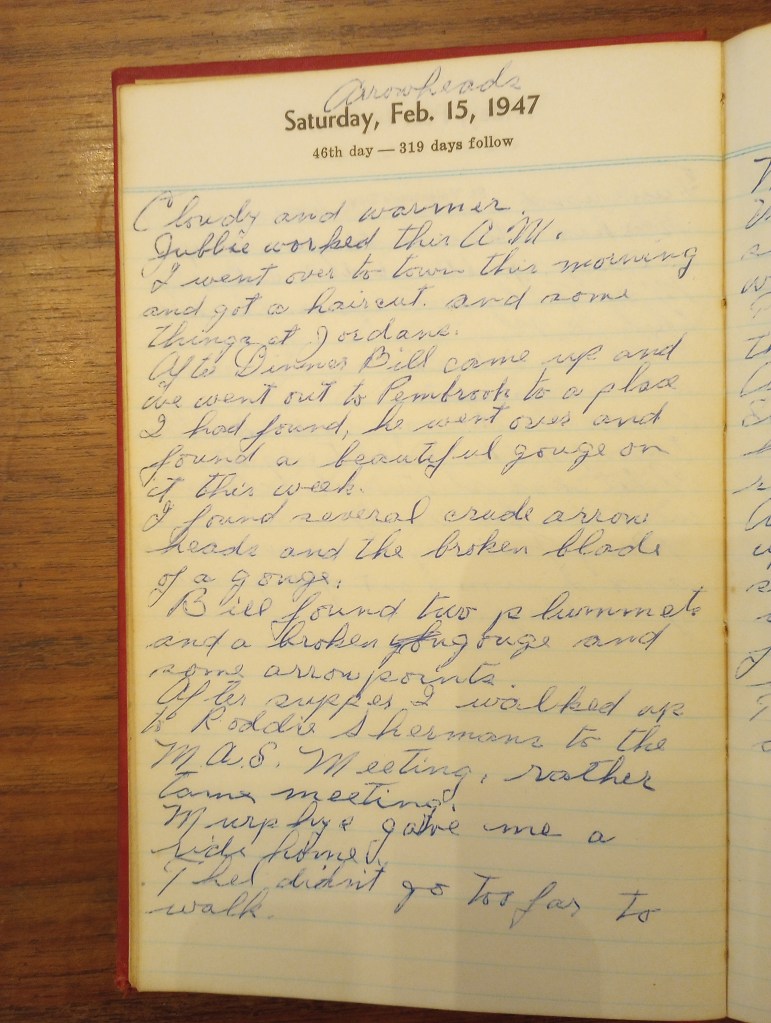 Arrowheads
Saturday, Feb. 15, 1947
46th day — 319 days follow
Cloudy and warmer.
Jubbie worked this A.M.
I went over to town this morning
and got a haircut. and some
things at Jordans.
After Dinner Bill came up and
we went out to Pembrook to a place
I had found, he went over and
found a beautiful gouge on
it this week.
I found several crude arrow
heads and the broken blade
of a gouge.
Bill found two plummets
and a broken gouge and
some arrow points.
After supper I walked up
to Roddie Shermans to the
M.A.S. Meeting, rather
tame meeting.
Murphys gave me a
ride home.
Thel didn't go too far to
walk.